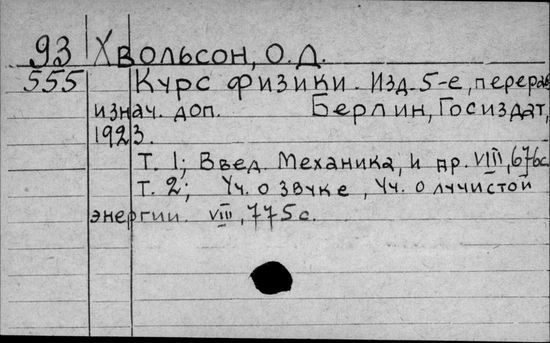 93 Хвольсон, О.Д.
555 Курс физики. Изд. 5-е, перераб
и знач. доп. Берлин, Госиздат,
1923.
Т. 1; Введ. Механика, и др. VIII, 676с
Т. 2; Уч. о звуке, Уч. о лучистой
энергии. VIII, 775с.